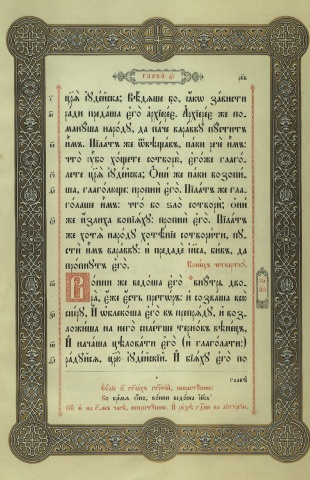 ГЛАВА
царѧ̀ і҆ꙋде́йска; Вѣ́дѧше бо, ꙗ҆́кѡ за́висти
ра́ди преда́ша є҆го̀ а҆рхїере́є. А҆рхїере́є же по-
манꙋ́ша наро́дꙋ, да па́че вара́ввꙋ пꙋ́ститъ
и҆̀мъ. Піла́тъ же ѿвѣща́въ, па́ки речѐ и҆̀мъ:
что̀ ᲂу҆̀бо хо́щете сотворю̀, є҆го́же глаго́-
лете царѧ̀ і҆ꙋде́йска; Ѻ҆ни́ же па́ки возопи́-
ша, глаго́люще: пропнѝ є҆го̀. Піла́тъ же гла-
го́лаше и҆̀мъ: что́ бо ѕло̀ сотворѝ; Ѻ҆ни́
же и҆́злиха вопїѧ́хꙋ: пропнѝ є҆го̀. Піла́тъ
же хотѧ̀ наро́дꙋ хотѣ́нїе сотвори́ти, пꙋ-
стѝ и҆̀мъ вара́ввꙋ: и҆ предадѐ і҆и҃са, би́въ, да
про́пнꙋтъ є҆го̀. Коне́цъ четвертк̀ꙋ
Во́ини же ведо́ша є҆го̀ внꙋ́трь дво-
ра̀, є҆́же є҆́сть прето́ръ: и҆ созва́ша всю̀
спі́рꙋ, И҆ ѡ҆блеко́ша є҆го̀ въ препрѧ́дꙋ, и҆ во́з-
ложи́ша на него̀ спле́тше терно́въ вѣне́цъ,
И҆ нача́ша цѣлова́ти є҆го̀ (и҆ глаго́лати:)
ра́дꙋйсѧ, цр҃ю̀ і҆ꙋде́йскїй. И҆ бїѧ́хꙋ є҆го̀ по
главѣ̀
во вре́мѧ ѻ҆́но, во́ини ведо́ша і҆и҃са